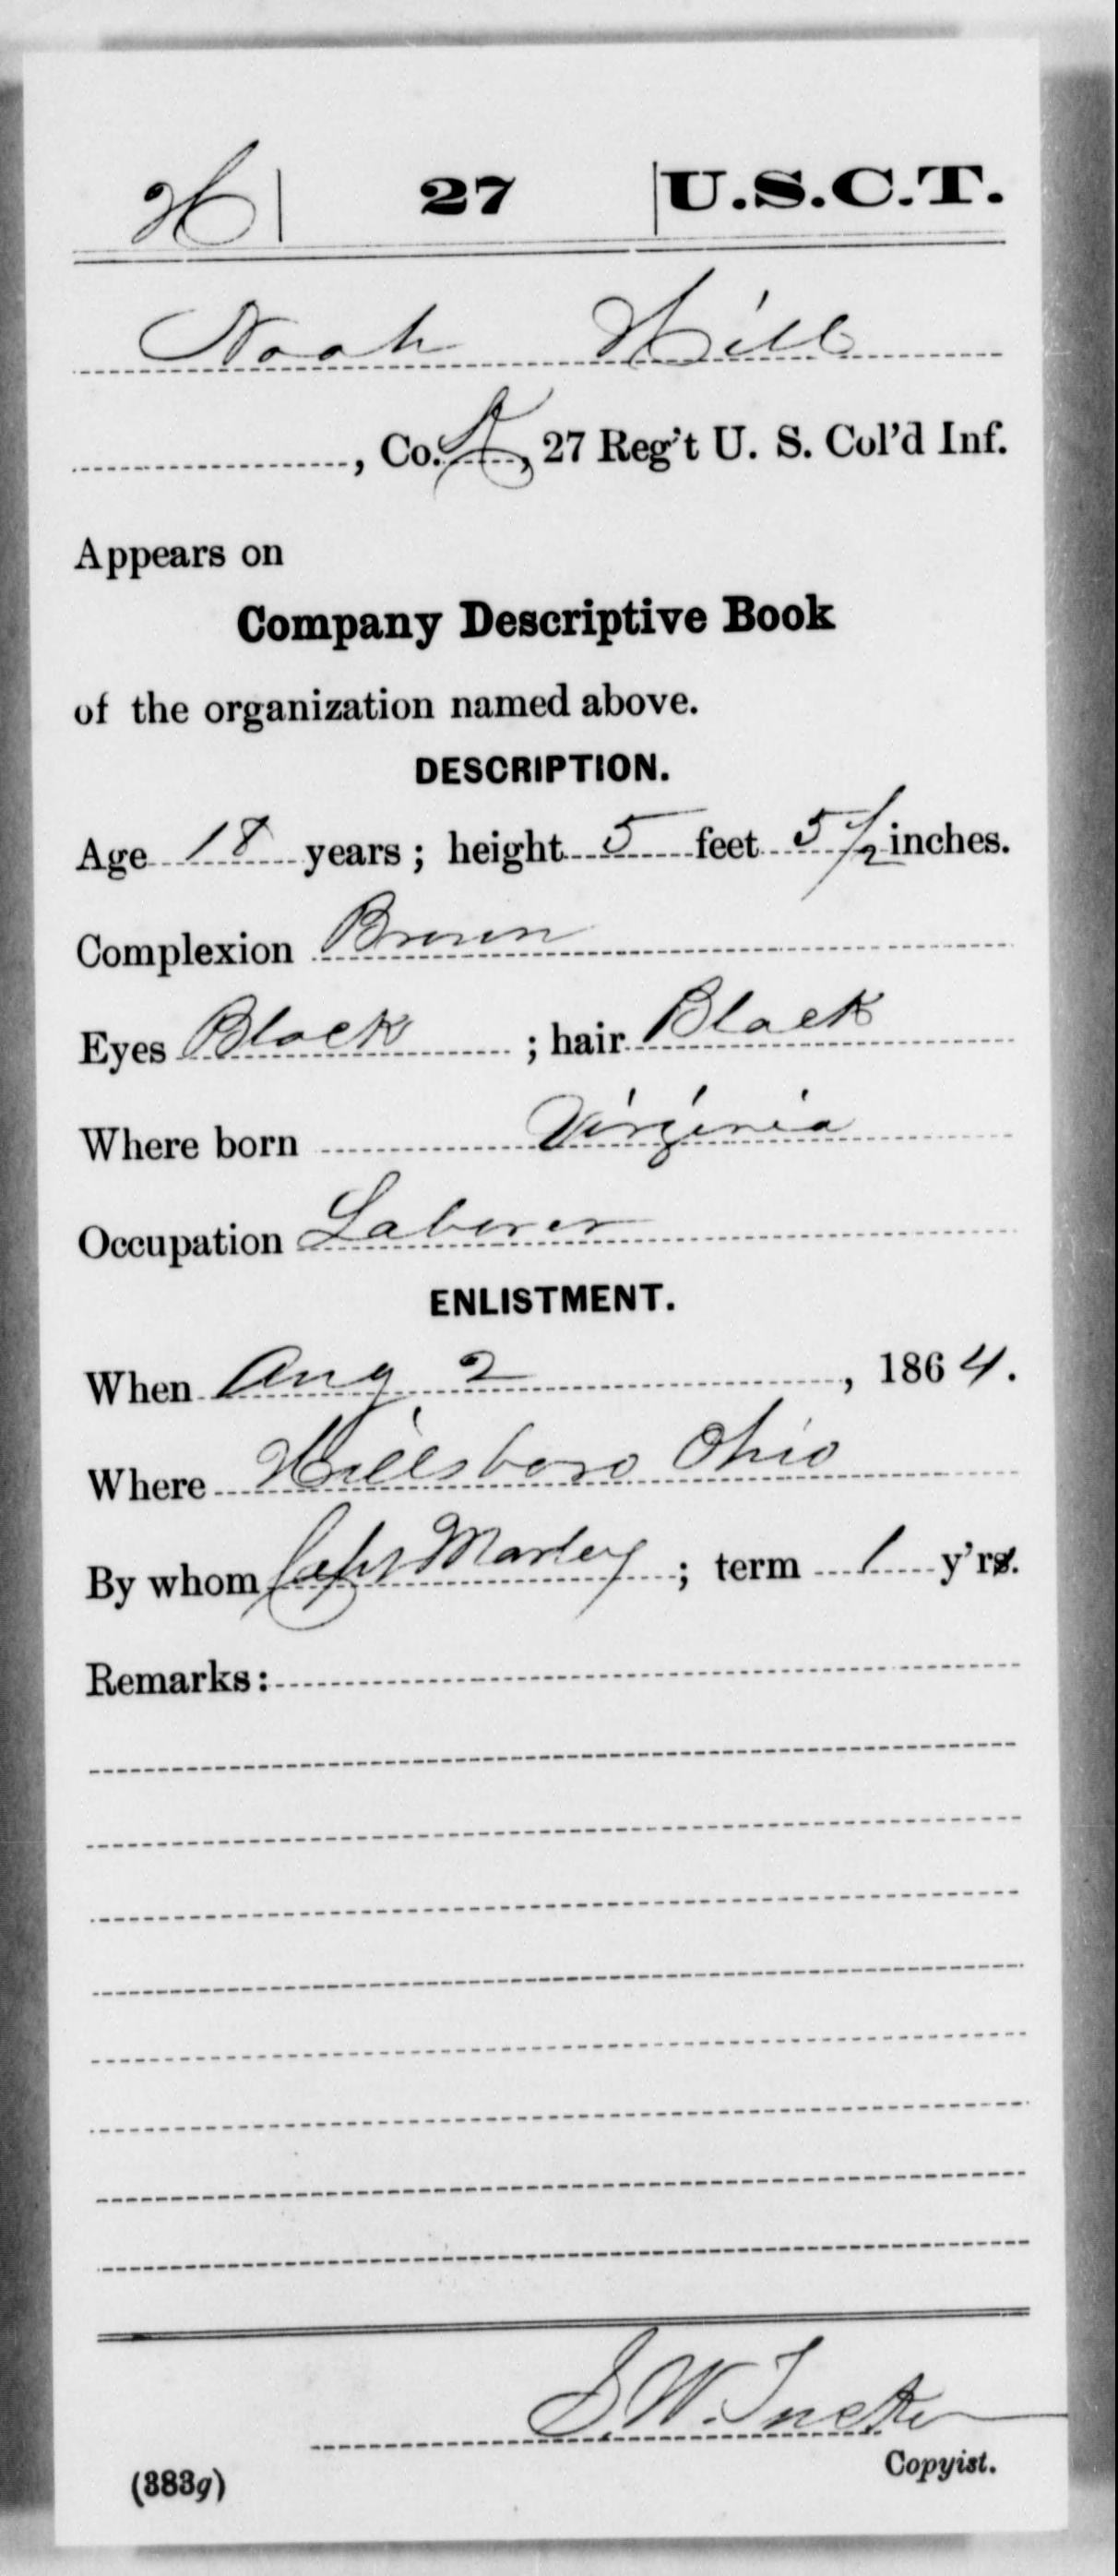 H | 27 | U.S.C.T.
Noah Hill
, Co. , 27 Reg't U. S. Col'd Inf.
Appears on
Company Descriptive Book
of the organization named above.
DESCRIPTION.
Age 18 years; height 5 feet 5 1/2 inches.
Complexion Brown
Eyes Black ; hair Black
Where born Virginia
Occupation Laborer
ENLISTMENT.
When Aug 2 , 1864.
Where Hillsboro Ohio
By whom Capt Marley ; term 1 y'rs.
Remarks:
S. W. Tucker
Copyist.
(383g)